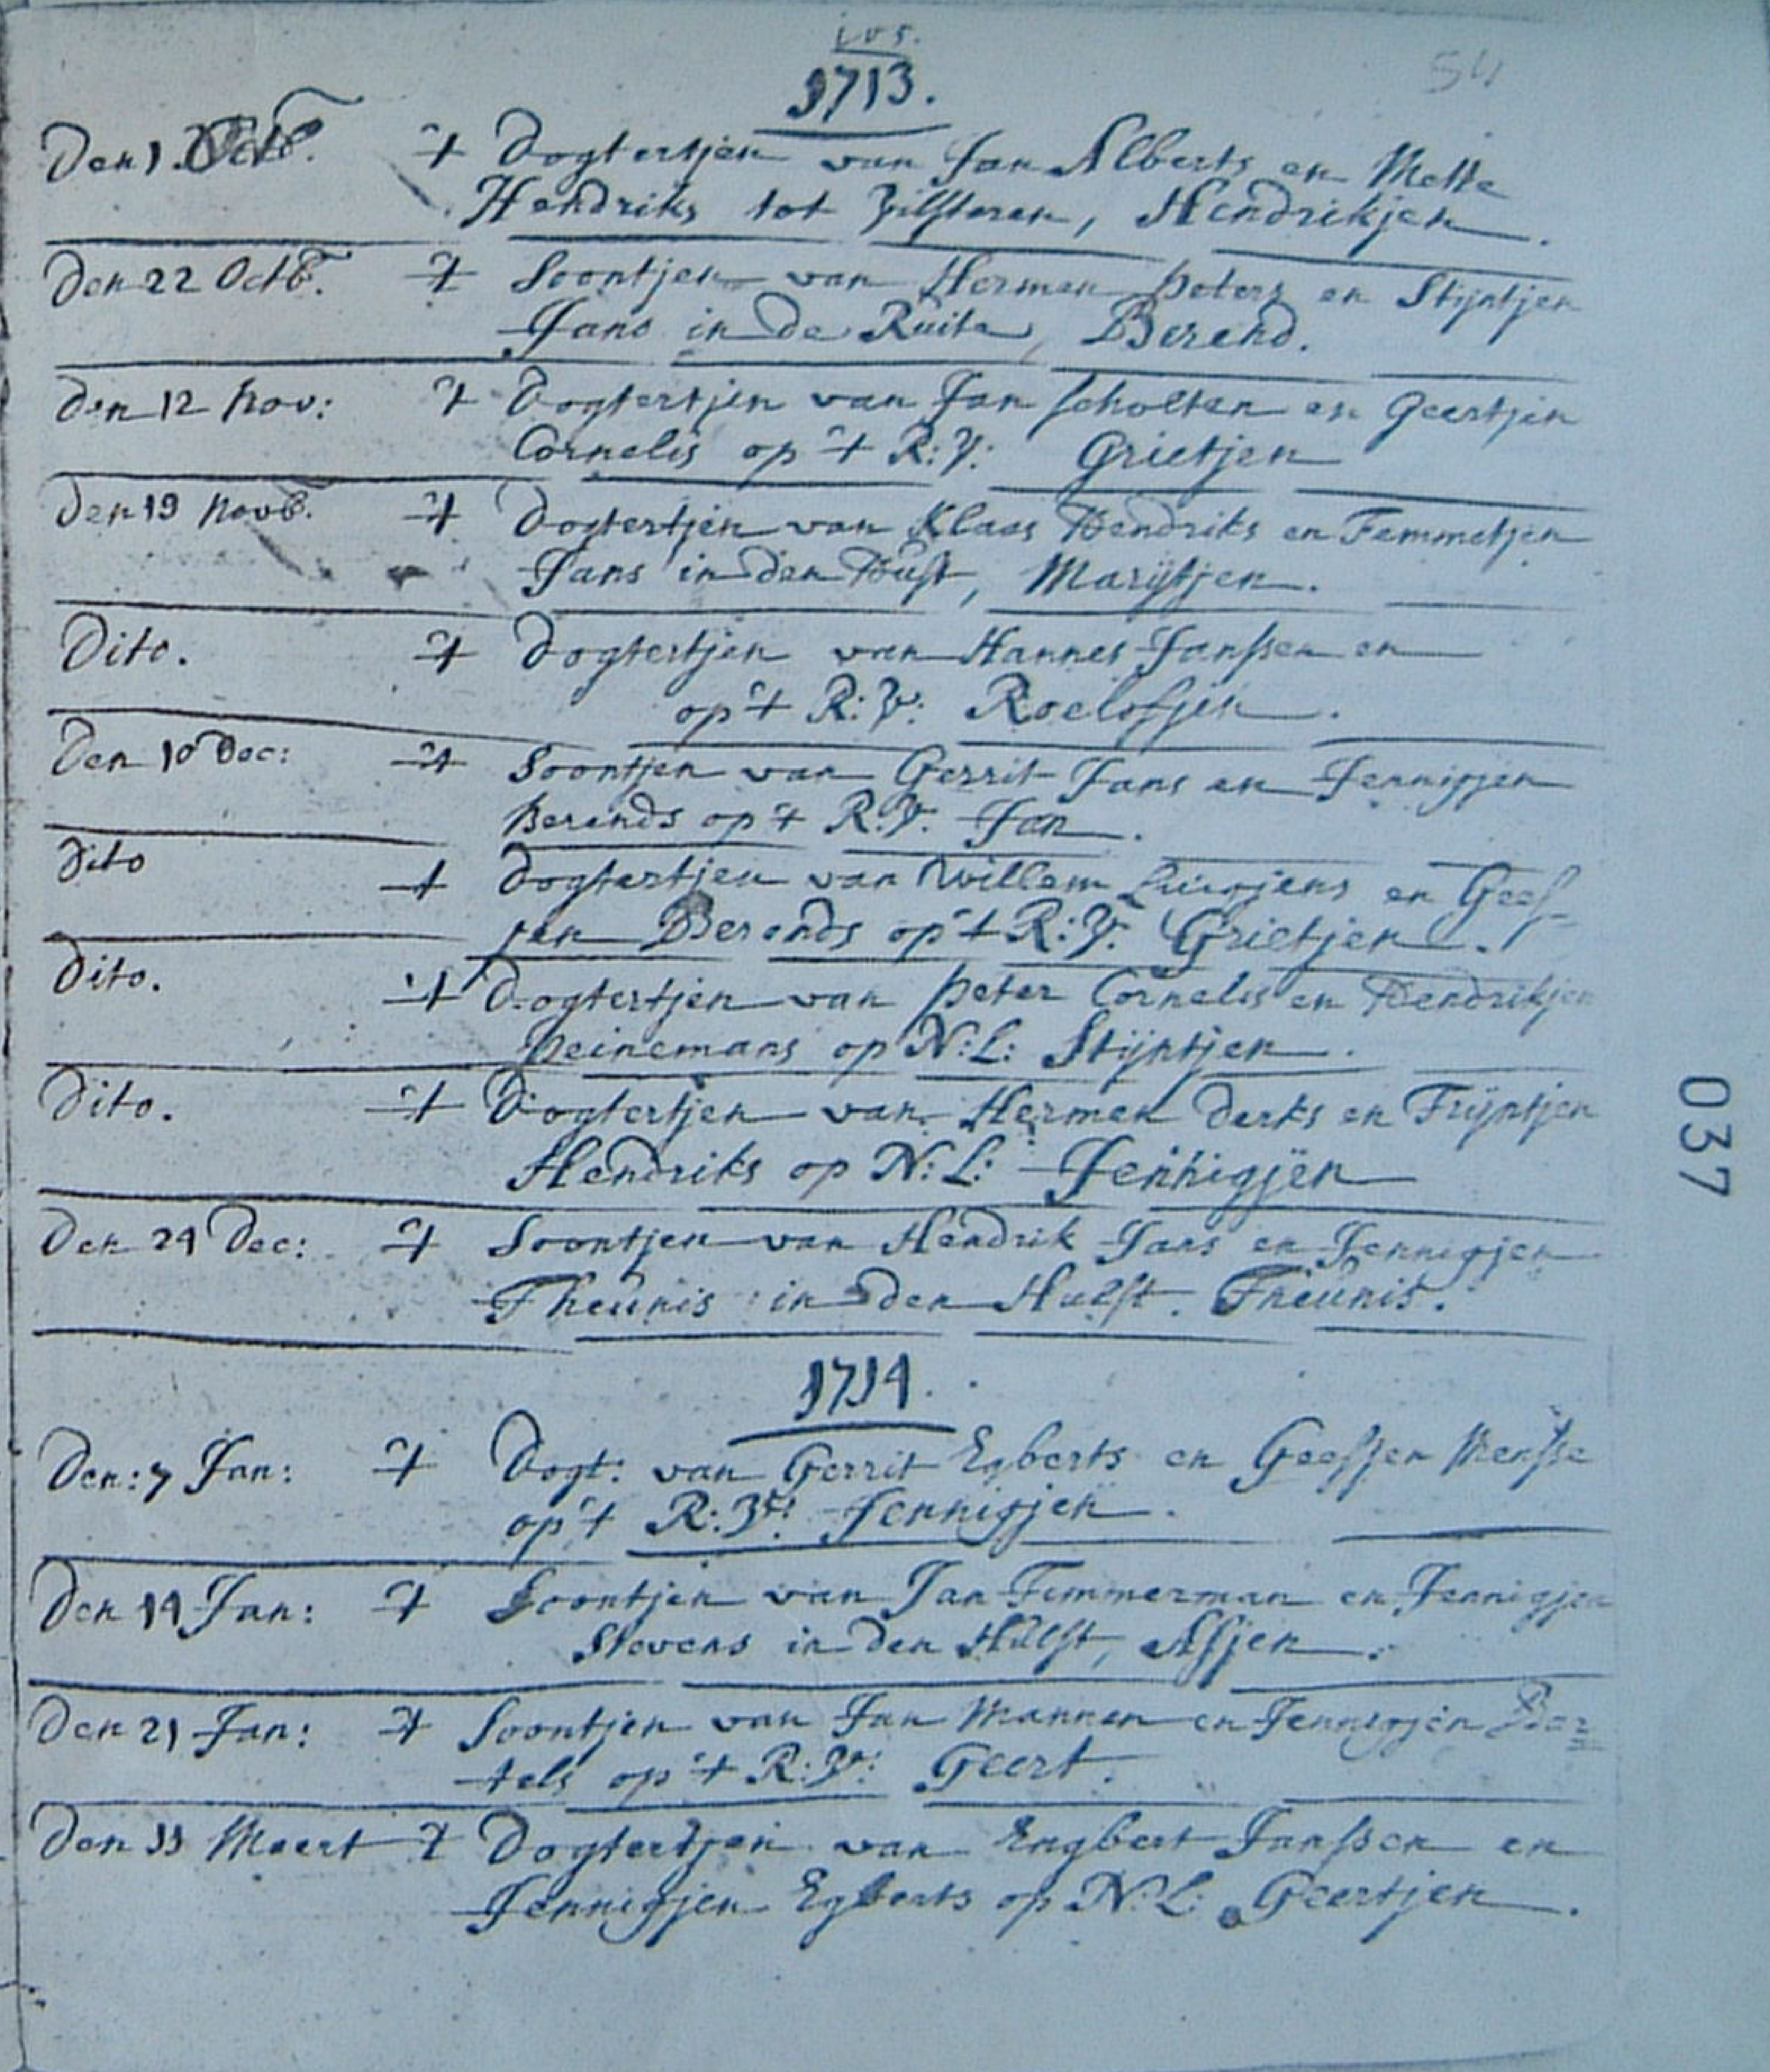 105.
54
1713.
Den 1. Octb. 't Dogtertjen van Jan Alberts en Mette
Hendriks tot Zilsteren, Hendrikjen.
Den 22 Octb. 't Soontjen van Hermen Peters en Stijntjen
Jans in de Ruite, Berend.
Den 12 Nov: 't Dogtertjen van Jan Scholten en Geertjen
Cornelis op 't R: V: Grietjen
Den 19 Novb. 't Dogtertjen van Klaas Hendriks en Femmetjen
Jans in den Hulst, Marijtjen.
Dito. 't Dogtertjen van Hannes Janssen en
op 't R: V: Roelofjen.
Den 10 Dec: 't Soontjen van Gerrit Jans en Jennigjen
Berends op 't R: V: Jan.
Dito 't Dogtertjen van Willem en Gees-
jen Berends op 't R: V: Grietjen.
Dito. 't Dogtertjen van Peter Cornelis en Hendrikjen
Heinemans op N: L: Stijntjen.
Dito. 't Dogtertjen van Hermen Derks en Trijntjen
Hendriks op N: L: Jennigjen
Den 24 Dec: 't Soontjen van Hendrik Jans en Jennigjen
Theunis in den Hulst. Theunis.
1714.
Den: 7 Jan: 't Dogt: van Gerrit Egberts en Geesjen Mensse
op 't R: V: Jennigjen.
Den 14 Jan: 't Soontjen van Jan Timmerman en Jennigjen
Stevens in den Hulst, Assjen.
Den 21 Jan: 't Soontjen van Jan Mannen en Jennigjen Bar=
tels op 't R: V: Geert.
Den 11 Meert 't Dogtertjen van Engbert Janssen en
Jennigjen Egberts op N: L: Geertjen.
037